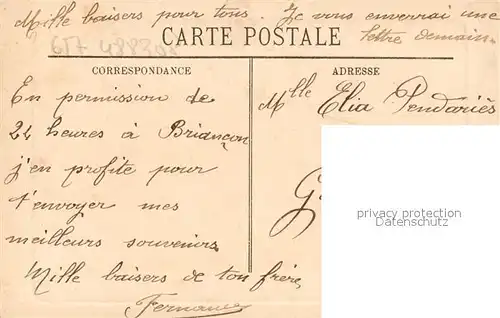 Mille baisers pour tous. Je vous enverrai une
lettre demain.
CARTE POSTALE
CORRESPONDANCE
ADRESSE
En permission de
24 heures à Briançon
j'en profite pour
t'envoyer mes
meilleurs souvenirs.
Mille baisers de ton frère
Fernand
Mlle Elia Pendariès
privacy protection
Datenschutz